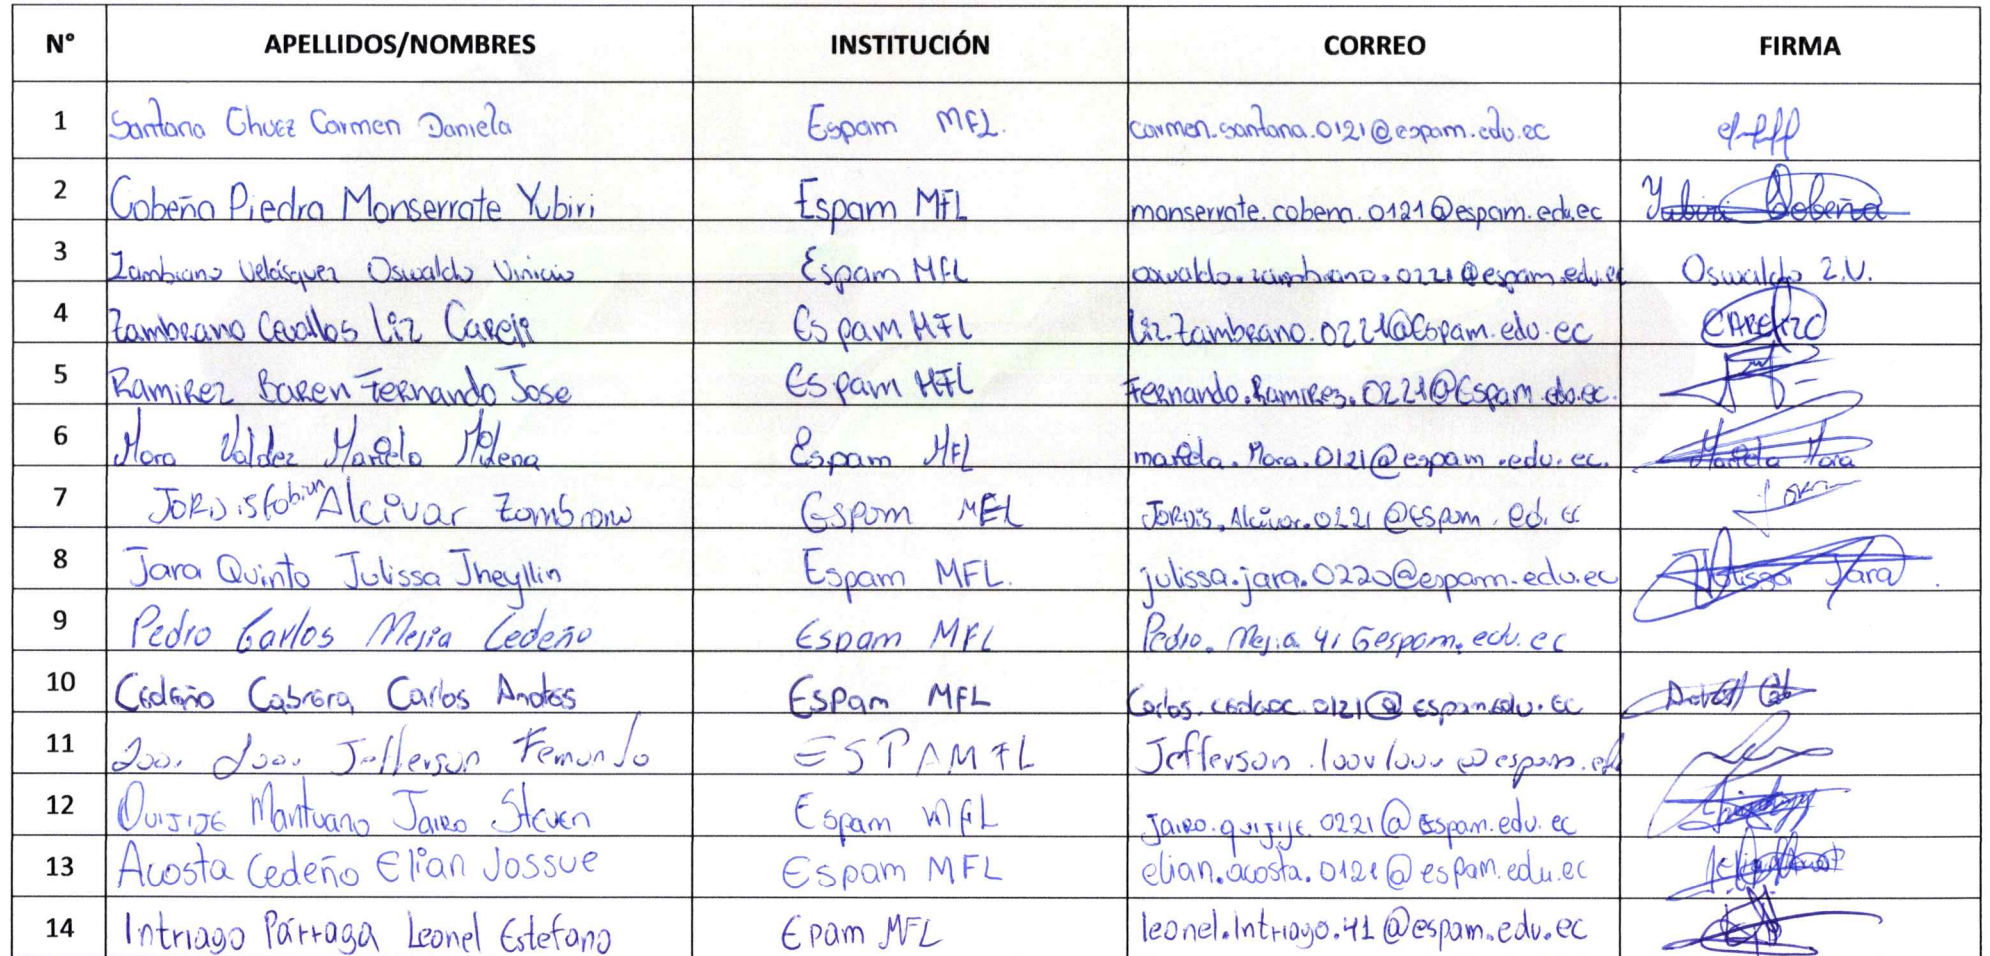 N° APELLIDOS/NOMBRES INSTITUCIÓN CORREO FIRMA
1 Santana Chuez Carmen Daniela Espam MFL. carmen.santana.0121@espam.edu.ec
2 Cobeña Piedra Monserrate Yubiri Espam MFL monserrate.cobena.0121@espam.edu.ec Yubiri Cobeña
3 Zambrano Velásquez Oswaldo Vinicio Espam MFL oswaldo.zambrano.0221@espam.edu.ec Oswaldo Z.V.
4 Zambrano Cevallos Liz Careli Espam MFL Liz.Zambrano.0221@Espam.edu.ec
5 Ramirez Baren Fernando Jose Espam MFL Fernando.Ramirez.0221@Espam.edu.ec.
6 Mora Valdez Mariela Milena Espam MFL mariela.Mora.0121@espam.edu.ec. Mariela Mora
7 Alcivar Zambrano Espam MFL
8 Jara Quinto Julissa Jheyllin Espam MFL. julissa.jara.0220@espam.edu.ec Julissa Jara
9 Pedro Carlos Mejia Cedeño Espam MFL Pedro.Mejia.41@espam.edu.ec
10 Cedeño Cabrera Carlos Andres Espam MFL
11 Jefferson Fernando ESPAMFL
12 Quijije Mantuano Jairo Steven Espam MFL Jairo.quijije.0221@espam.edu.ec
13 Acosta Cedeño Elian Jossue Espam MFL elian.acosta.0121@espam.edu.ec
14 Intriago Párraga Leonel Estefano Epam MFL leonel.Intriago.41@espam.edu.ec